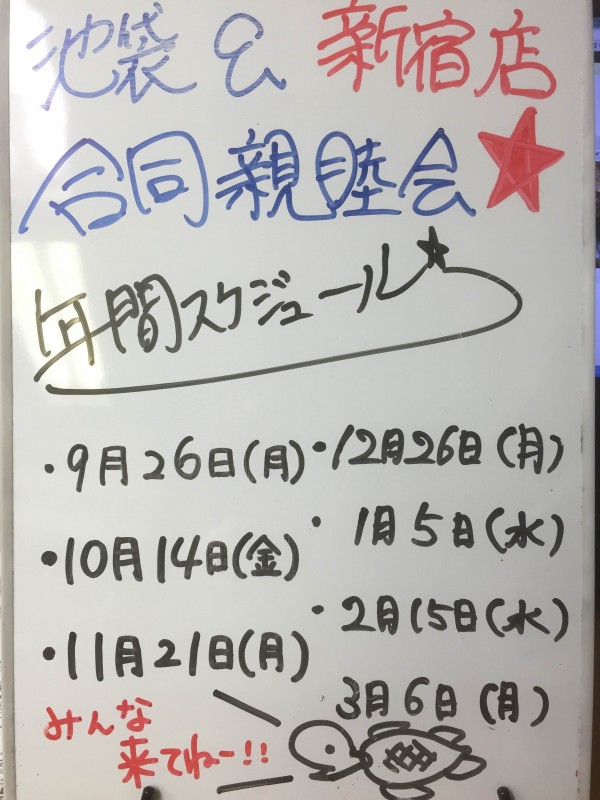 池袋&新宿店
合同親睦会★
年間スケジュール★
・9月26日(月)
・10月14日(金)
・11月21日(月)
・12月26日(月)
・1月5日(水)
・2月15日(水)
3月6日(月)
みんな
来てねー!!